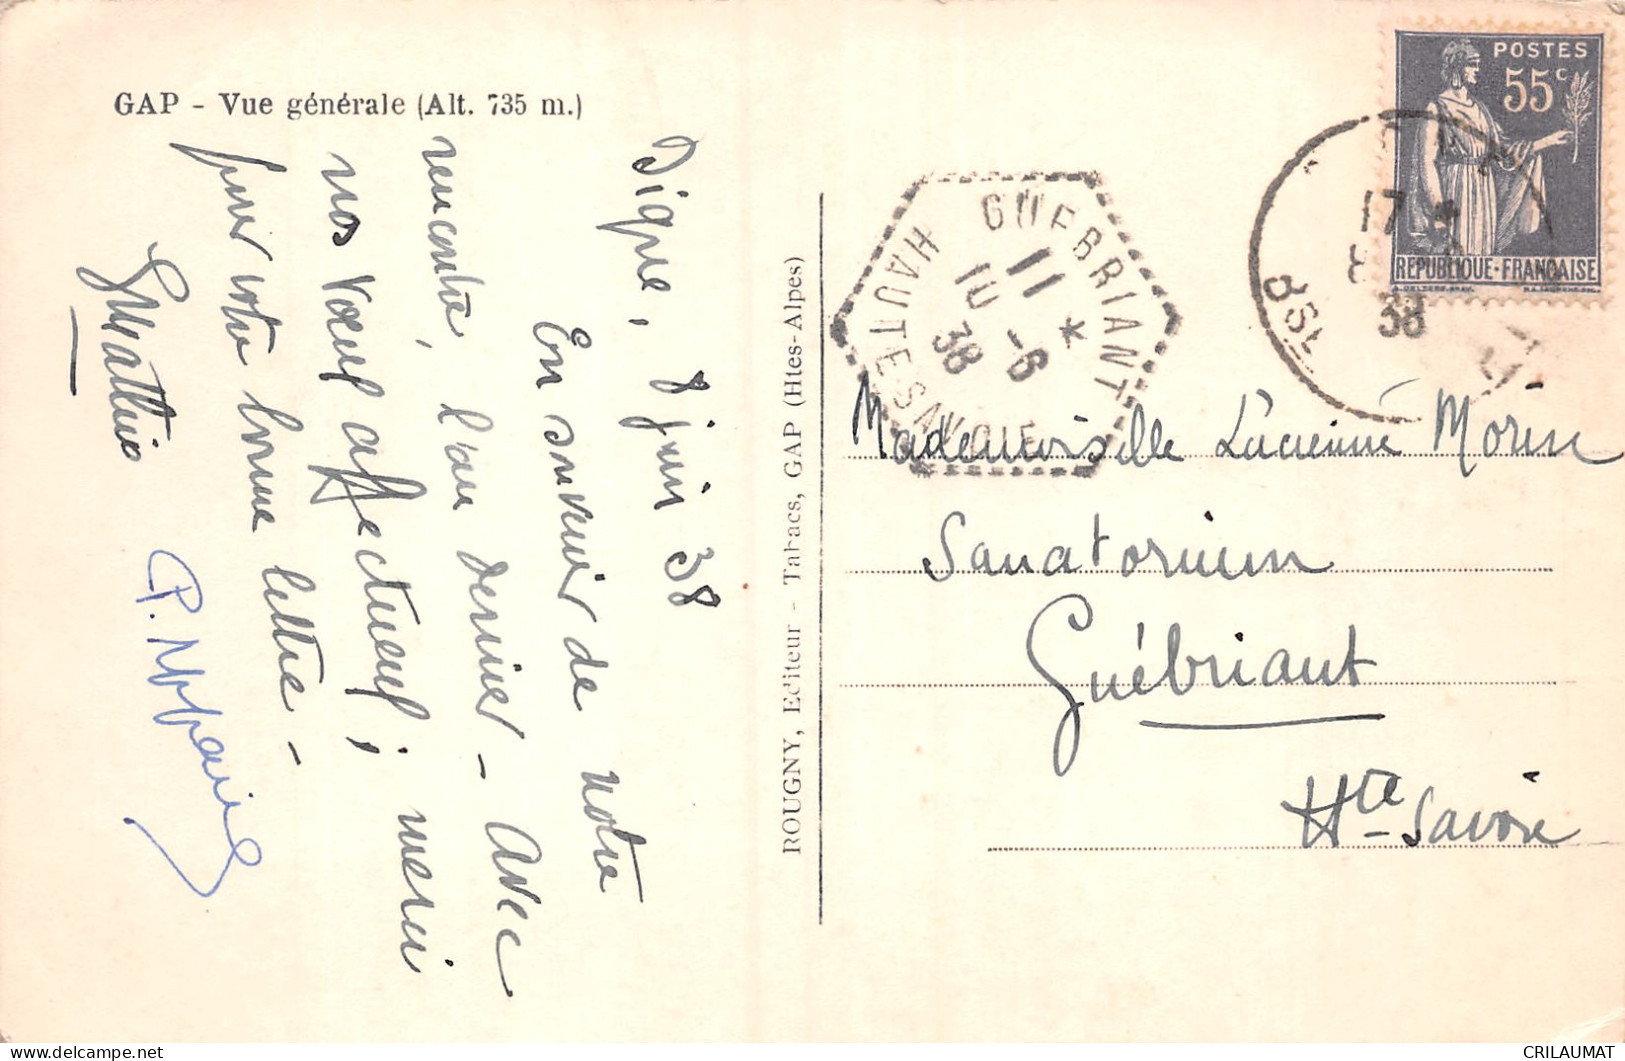 GAP - Vue générale (Alt. 735 m.)
Digne, 8 juin 38
En souvenir de votre
rencontre, l'an dernier - Avec
nos vœux affectueux ; merci
pour votre bonne lettre -
ROUGNY, Editeur - Tabacs, GAP (Htes-Alpes)
GUEBRIANT
11
10 -6
38
*
HAUTE SAVOIE
17
38
POSTES
55c
REPUBLIQUE-FRANÇAISE
Mademoiselle Lucienne Morin
Sanatorium
Guébriant
Hte Savoie
CRILAUMAT